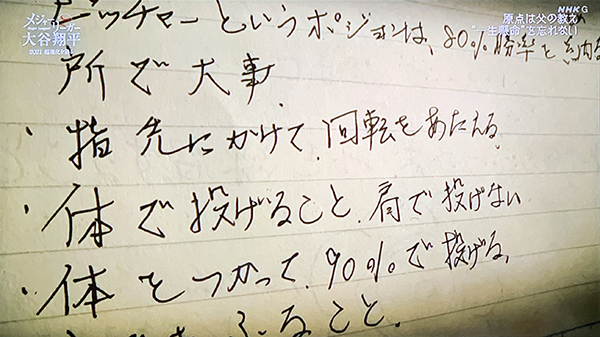 メジャーリーガー
大谷翔平
2021
NHK G
原点は父の教え
“一生懸命”を忘れない
ピッチャーというポジションは、80%勝率
所で大事、
・指先にかけて、回転をあたえる、
・体で投げること、肩で投げない
・体をつかって、90%で投げる、
ふること、